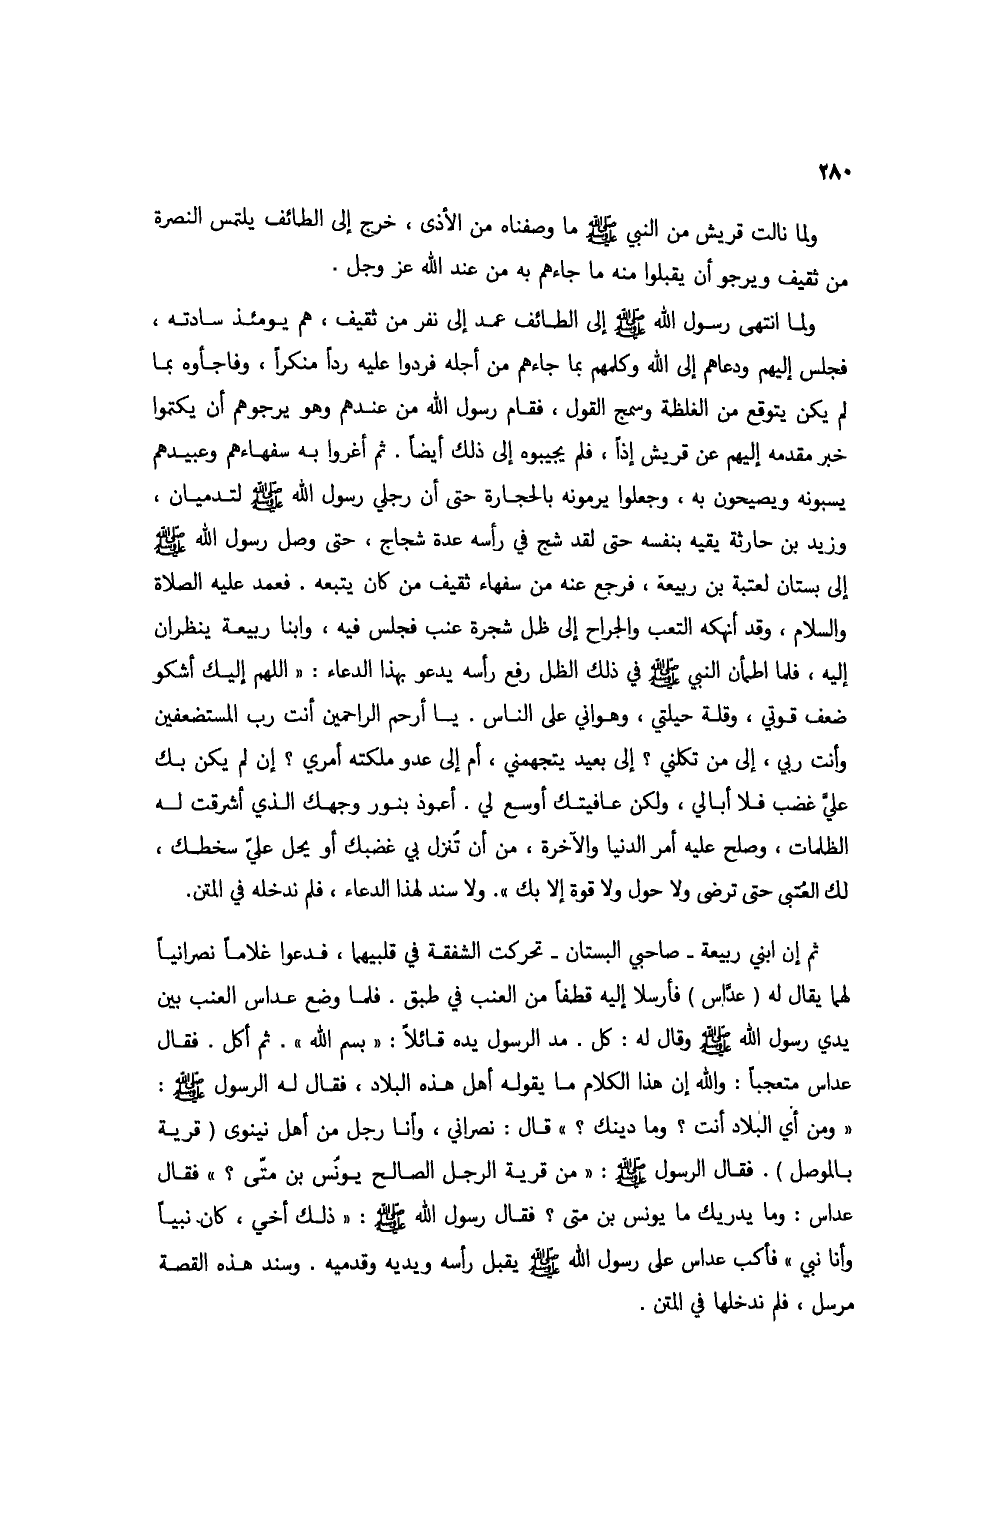 ٢٨٠
ولما نالت قريش من النبي ﷺ ما وصفناه من الأذى ، خرج إلى الطائف يلتمس النصرة
من ثقيف ويرجو أن يقبلوا منه ما جاءهم به من عند الله عز وجل .
ولما انتهى رسول الله ﷺ إلى الطائف عمد إلى نفر من ثقيف ، هم يومئذ سادته ،
فجلس إليهم ودعاهم إلى الله وكلمهم بما جاءهم من أجله فردوا عليه رداً منكراً ، وفاجأوه بما
لم يكن يتوقع من الغلظة وسمج القول ، فقام رسول الله من عندهم وهو يرجوهم أن يكتموا
خبر مقدمه إليهم عن قريش إذاً ، فلم يجيبوه إلى ذلك أيضاً . ثم أغروا به سفهاءهم وعبيدهم
يسبونه ويصيحون به ، وجعلوا يرمونه بالحجارة حتى أن رجلي رسول الله ﷺ لتدميان ،
وزيد بن حارثة يقيه بنفسه حتى لقد شج في رأسه عدة شجاج ، حتى وصل رسول الله ﷺ
إلى بستان لعتبة بن ربيعة ، فرجع عنه من سفهاء ثقيف من كان يتبعه . فعمد عليه الصلاة
والسلام ، وقد أنهكه التعب والجراح إلى ظل شجرة عنب فجلس فيه ، وابنا ربيعة ينظران
إليه ، فلما اطمأن النبي ﷺ في ذلك الظل رفع رأسه يدعو بهذا الدعاء : « اللهم إليك أشكو
ضعف قوتي ، وقلة حيلتي ، وهواني على الناس . يا أرحم الراحمين أنت رب المستضعفين
وأنت ربي ، إلى من تكلني ؟ إلى بعيد يتجهمني ، أم إلى عدو ملكته أمري ؟ إن لم يكن بك
عليَّ غضب فلا أبالي ، ولكن عافيتك أوسع لي . أعوذ بنور وجهك الذي أشرقت له
الظلمات ، وصلح عليه أمر الدنيا والآخرة ، من أن تُنزل بي غضبك أو يحل عليّ سخطك ،
لك العُتبى حتى ترضى ولا حول ولا قوة إلا بك ». ولا سند لهذا الدعاء ، فلم ندخله في المتن.
ثم إن ابني ربيعة ـ صاحبي البستان ـ تحركت الشفقة في قلبيهما ، فدعوا غلاماً نصرانياً
لهما يقال له ( عدَّاس ) فأرسلا إليه قطفاً من العنب في طبق . فلما وضع عداس العنب بين
يدي رسول الله ﷺ وقال له : كل . مد الرسول يده قائلاً : « بسم الله » . ثم أكل . فقال
عداس متعجباً : والله إن هذا الكلام ما يقوله أهل هذه البلاد ، فقال له الرسول ﷺ :
« ومن أي البلاد أنت ؟ وما دينك ؟ » قال : نصراني ، وأنا رجل من أهل نينوى ( قرية
بالموصل ) . فقال الرسول ﷺ : « من قرية الرجل الصالح يونُس بن متّى ؟ » فقال
عداس : وما يدريك ما يونس بن متى ؟ فقال رسول الله ﷺ : « ذلك أخي ، كان نبياً
وأنا نبي » فأكب عداس على رسول الله ﷺ يقبل رأسه ويديه وقدميه . وسند هذه القصة
مرسل ، فلم ندخلها في المتن .